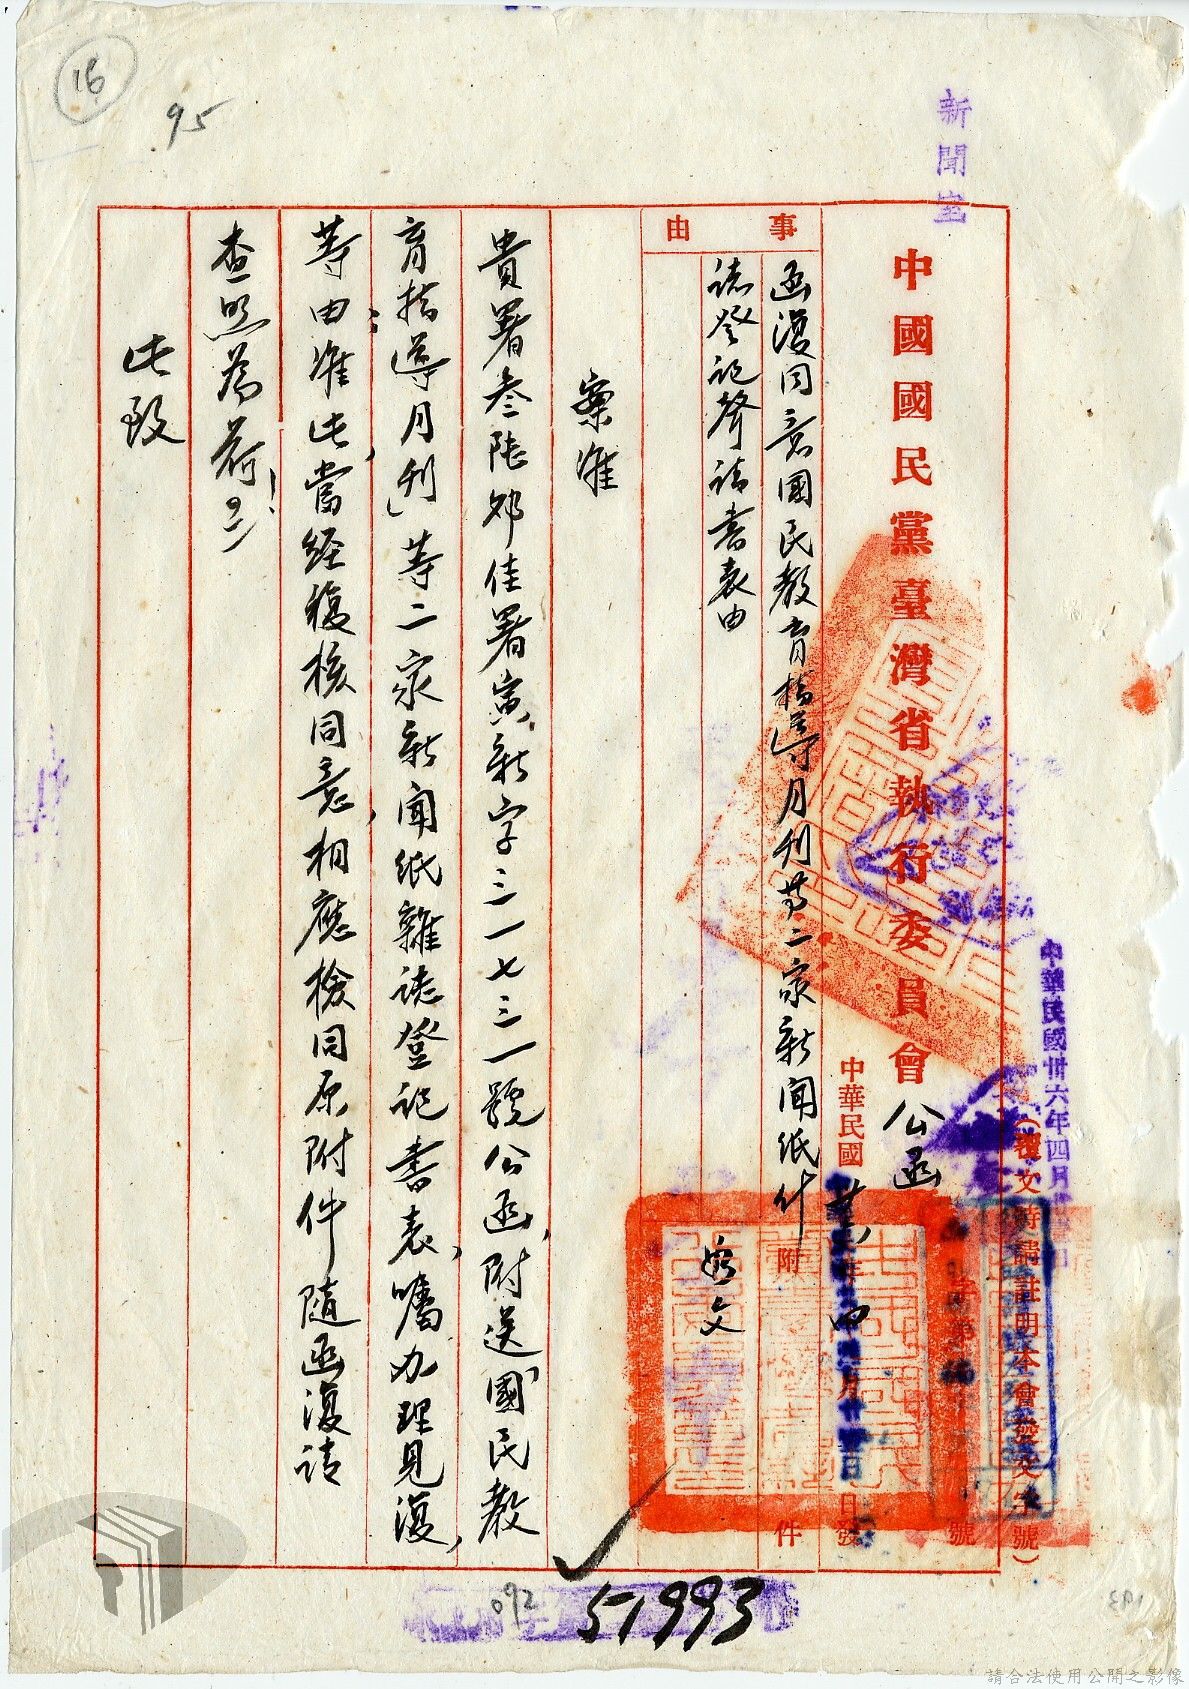 16
95
新聞室
中國國民黨臺灣省執行委員會 公函
（復文時請註明本會發文字號）
中華民國卅六年四月
字第 號
中華民國 卅六年四月 日發
事由
函復同意國民教育指導月刊等二家新聞紙什
誌登記聲請書表由
附件
隨文
案准
貴署叁陸卯佳署寅新字三一七三一號公函，附送「國民教
育指導月刊」等二家新聞紙雜誌登記書表，囑办理見復，
等由准此，當經複核同意，相應檢同原附件隨函復請
查照為荷！
此致
092
51993
請合法使用公開之影像